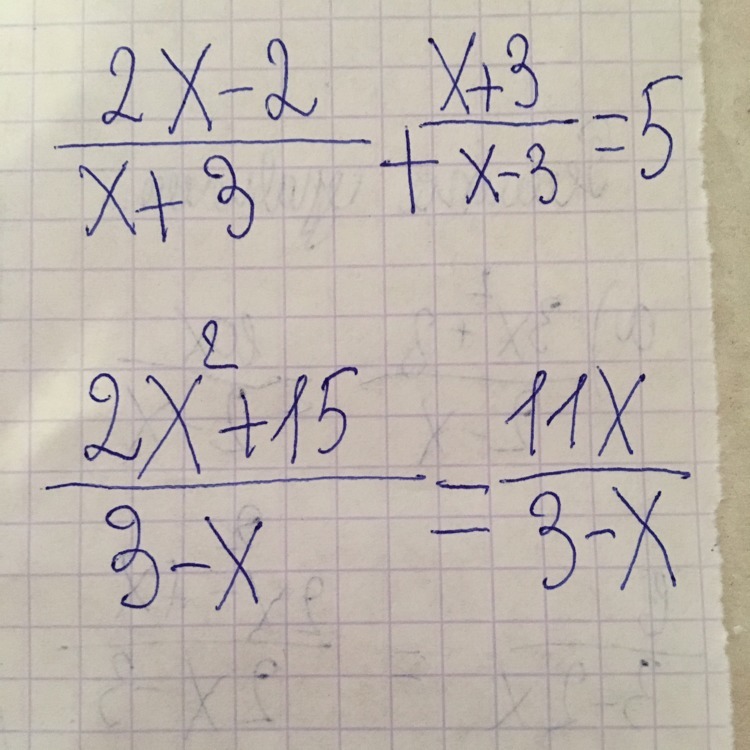 (2x-2)/(x+3) + (x+3)/(x-3) = 5
(2x²+15)/(3-x) = 11x/(3-x)